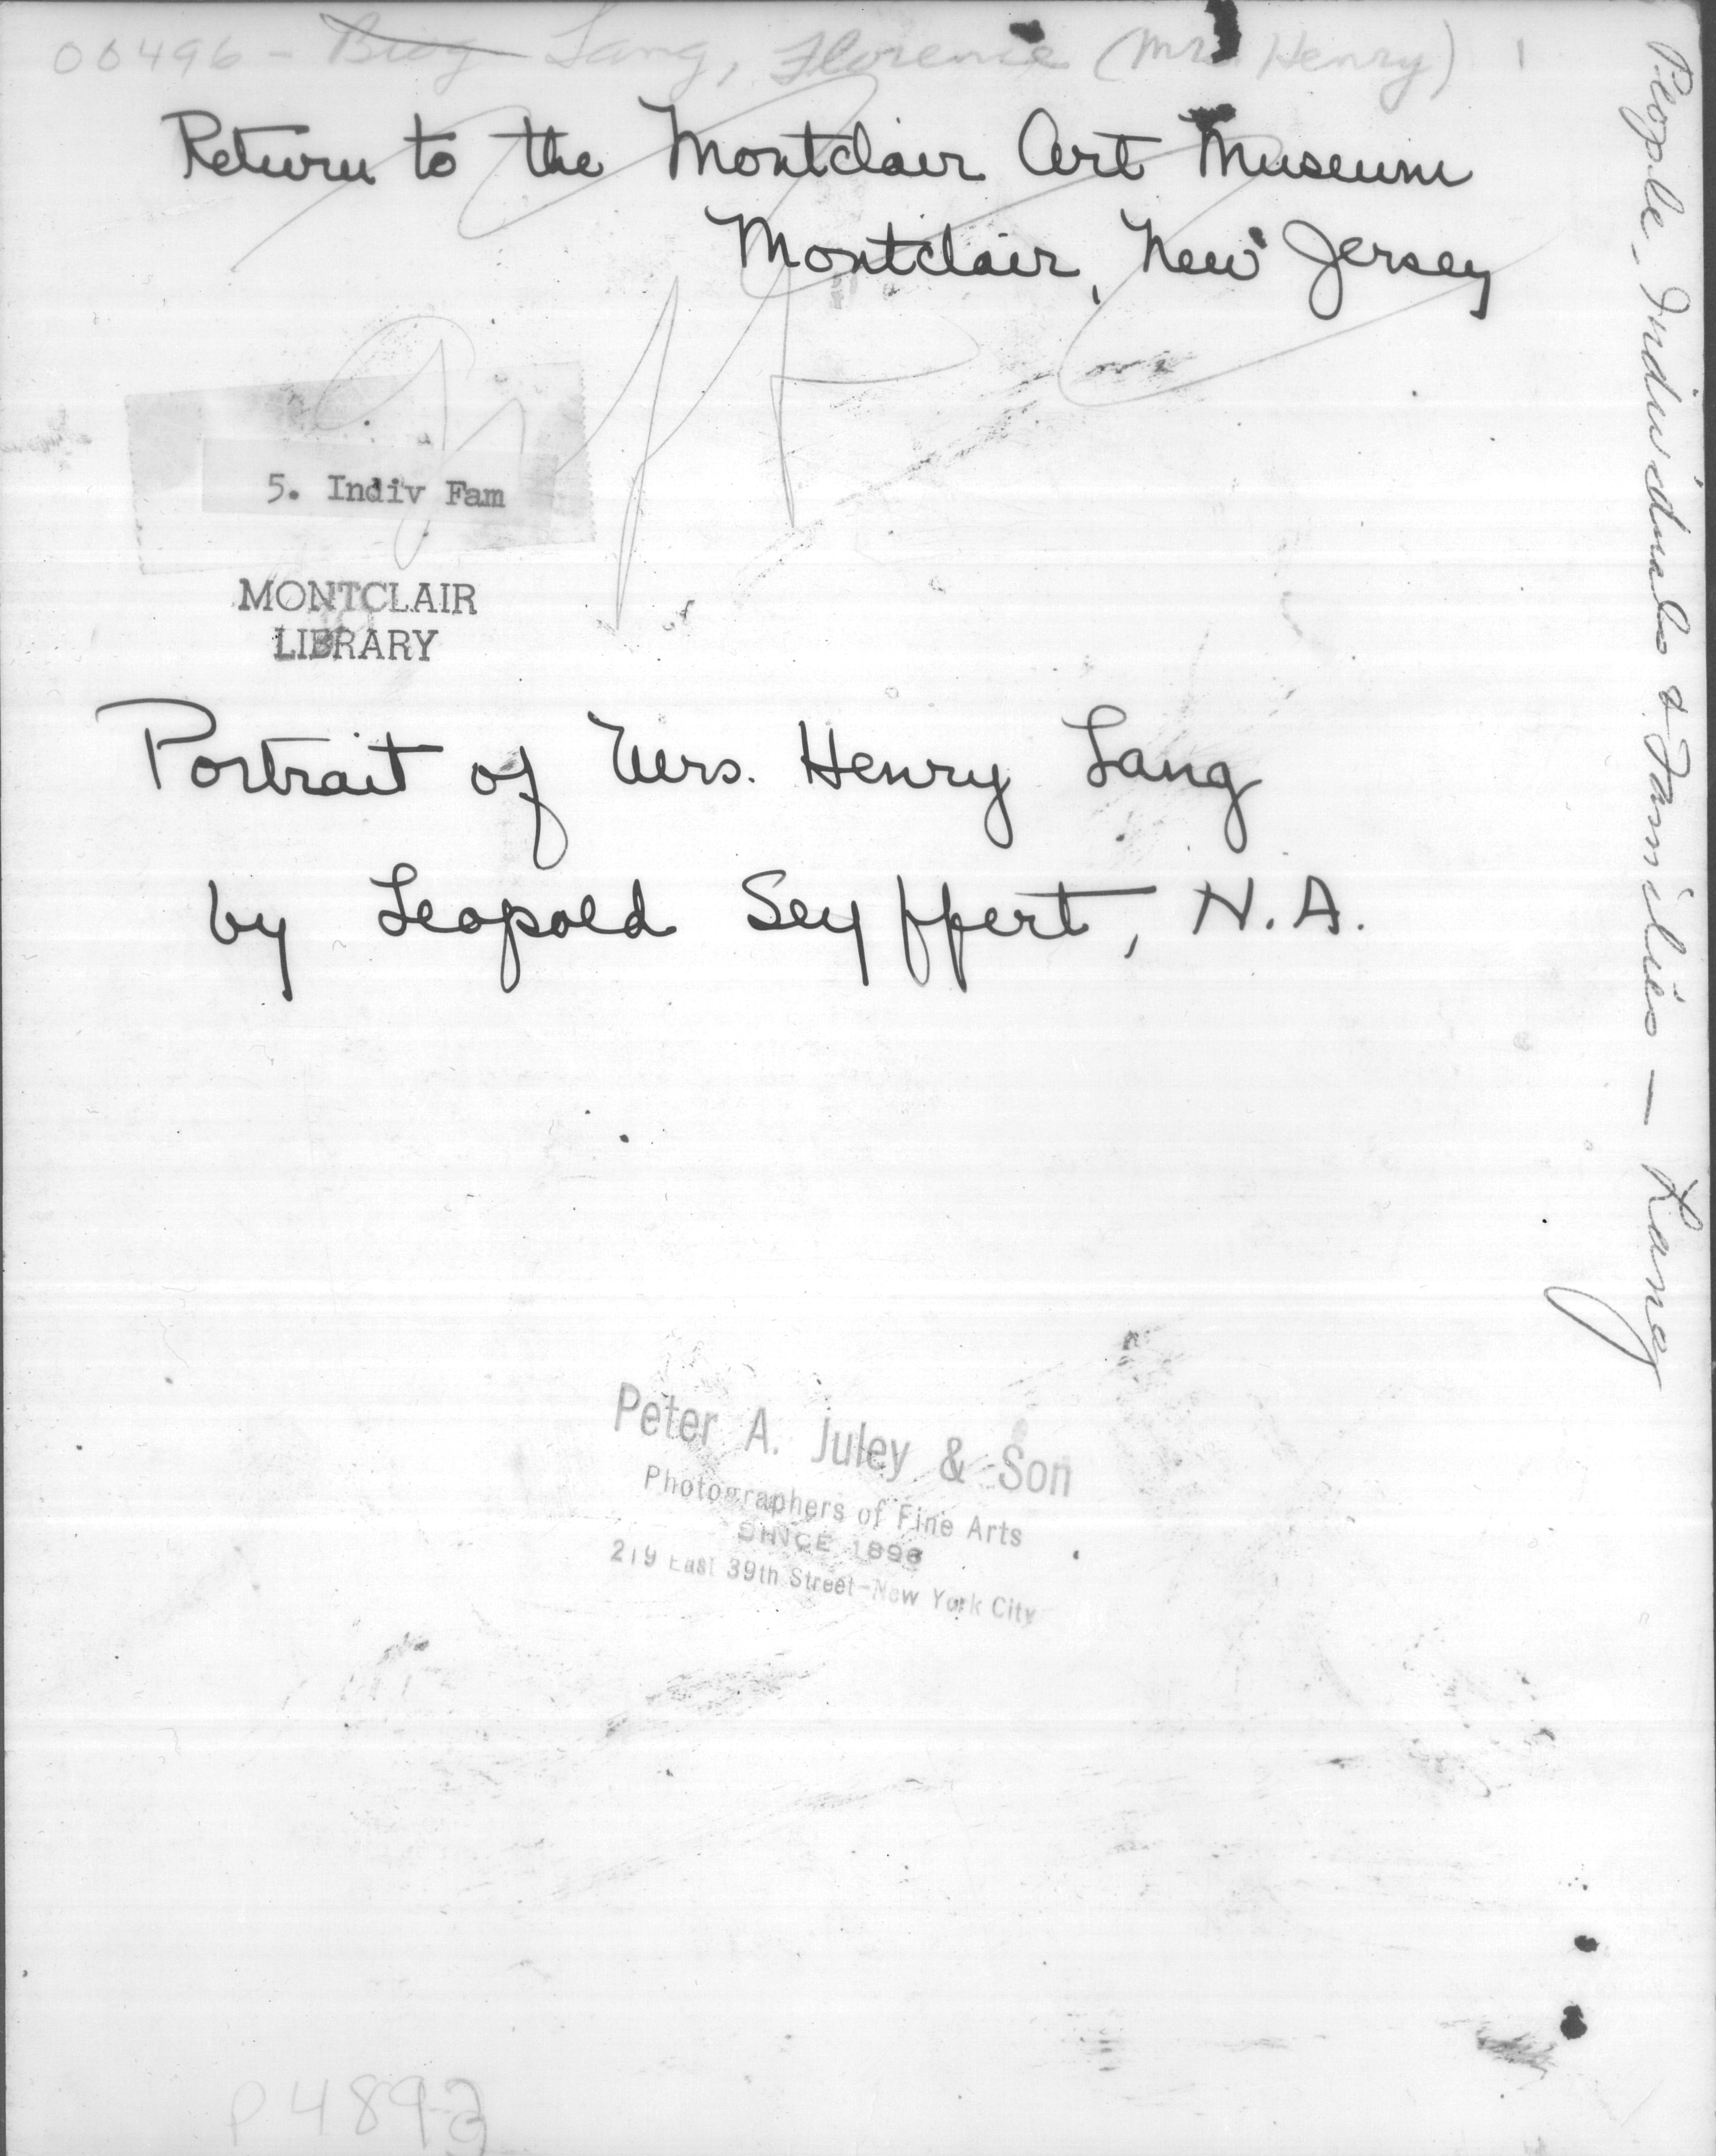 00496 - Biog Lang, Florence (Mrs Henry) 1
Return to the Montclair Art Museum
Montclair, New Jersey
5. Indiv Fam
MONTCLAIR
LIBRARY
Portrait of Mrs. Henry Lang
by Leopold Seyffert, N.A.
Peter A. Juley & Son
Photographers of Fine Arts
SINCE 1896
219 East 39th Street-New York City
People - Individuals & Families - Lang